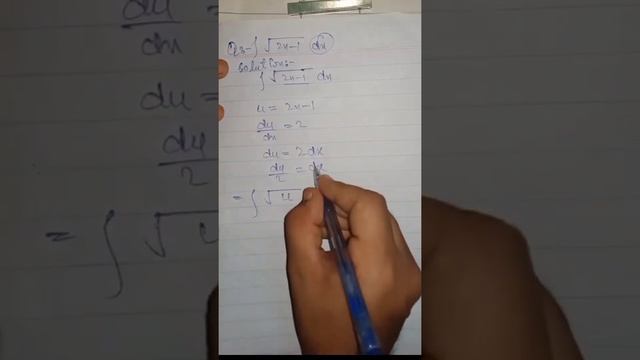 Q3- ∫ √2x-1 dx
Solutions-
∫ √2x-1 dx
u = 2x-1
du/dx = 2
du = 2dx
du/2 = dx
= ∫ √u